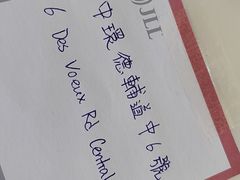 JLL
中環德輔道中6號
6 Des Voeux Rd Central